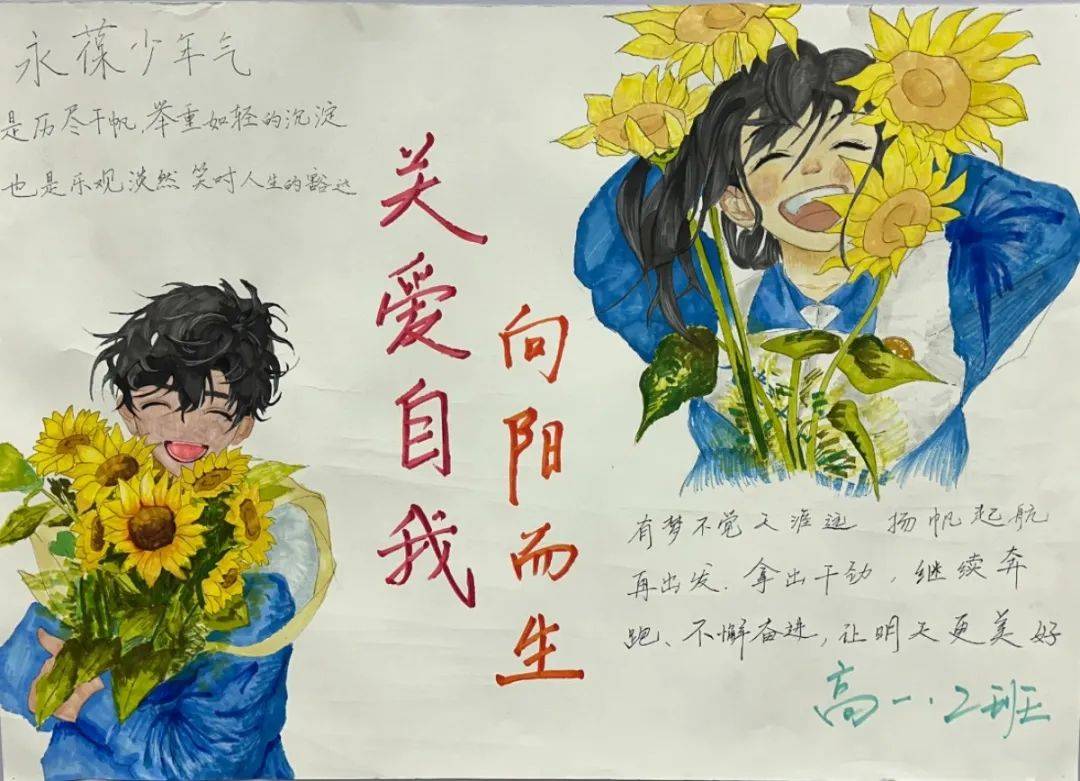 永葆少年气
是历尽千帆,举重如轻的沉淀
也是乐观淡然 笑对人生的豁达
关爱自我
向阳而生
有梦不觉天涯远 扬帆起航
再出发.拿出干劲,继续奔
跑、不懈奋进,让明天更美好
高一.2班